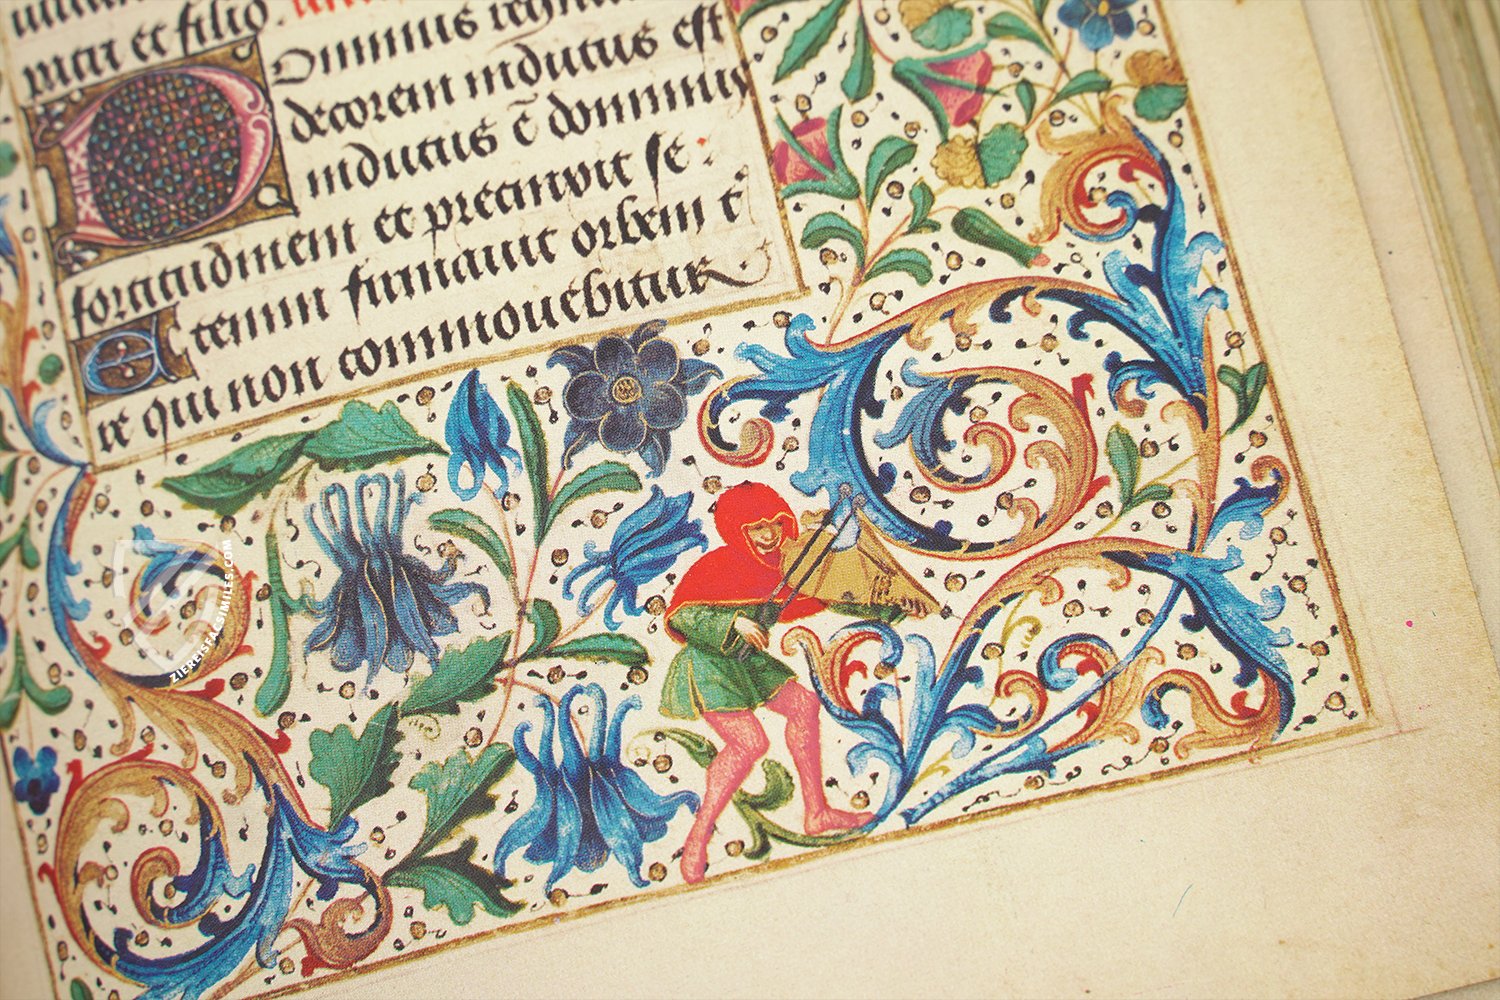 patri et filio.
Dominus regna
decorem indutus est
indutus ē dominus
fortitudinem et precinxit se:
Etenim firmauit orbem t̄
re qui non commouebitur
ZIEREISFACSIMILES.COM